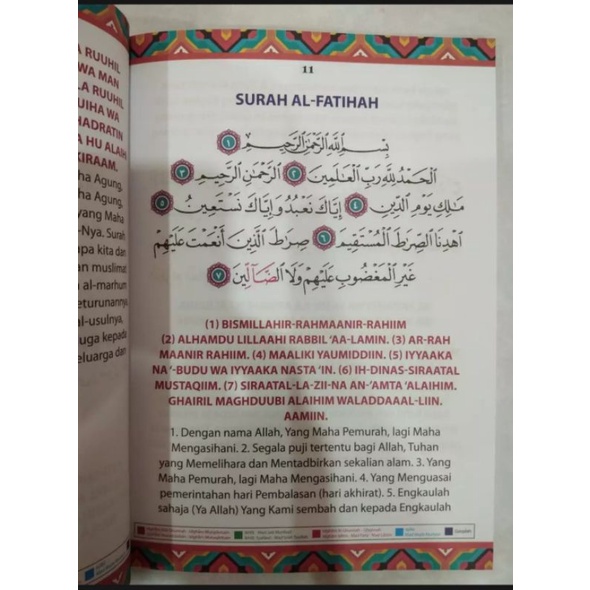 A RUUHIL
WA MAN
LA RUUHIL
UIHA WA
HADRATIN
A HU ALAIHI
KIRAAM.
ha Agung,
ha Agung,
yang Maha
-Nya. Surah
apa kita dan
an muslimat
a al-marhum
eturunannya,
al-usulnya,
uga kepada
eluarga dan
11
SURAH AL-FATIHAH
بِسْمِ اللَّهِ الرَّحْمَٰنِ الرَّحِيمِ ١
الْحَمْدُ لِلَّهِ رَبِّ الْعَالَمِينَ ٢ الرَّحْمَٰنِ الرَّحِيمِ ٣
مَالِكِ يَوْمِ الدِّينِ ٤ إِيَّاكَ نَعْبُدُ وَإِيَّاكَ نَسْتَعِينُ ٥
اهْدِنَا الصِّرَاطَ الْمُسْتَقِيمَ ٦ صِرَاطَ الَّذِينَ أَنْعَمْتَ عَلَيْهِمْ
غَيْرِ الْمَغْضُوبِ عَلَيْهِمْ وَلَا الضَّالِّينَ ٧
(1) BISMILLAHIR-RAHMAANIR-RAHIIM
(2) ALHAMDU LILLAAHI RABBIL 'AA-LAMIN. (3) AR-RAH
MAANIR RAHIIM. (4) MAALIKI YAUMIDDIIN. (5) IYYAAKA
NA '-BUDU WA IYYAAKA NASTA 'IN. (6) IH-DINAS-SIRAATAL
MUSTAQIIM. (7) SIRAATAL-LA-ZII-NA AN-'AMTA 'ALAIHIM.
GHAIRIL MAGHDUUBI ALAIHIM WALADDAAAL-LIIN.
AAMIIN.
1. Dengan nama Allah, Yang Maha Pemurah, lagi Maha
Mengasihani. 2. Segala puji tertentu bagi Allah, Tuhan
yang Memelihara dan Mentadbirkan sekalian alam. 3. Yang
Maha Pemurah, lagi Maha Mengasihani. 4. Yang Menguasai
pemerintahan hari Pembalasan (hari akhirat). 5. Engkaulah
sahaja (Ya Allah) Yang Kami sembah dan kepada Engkaulah